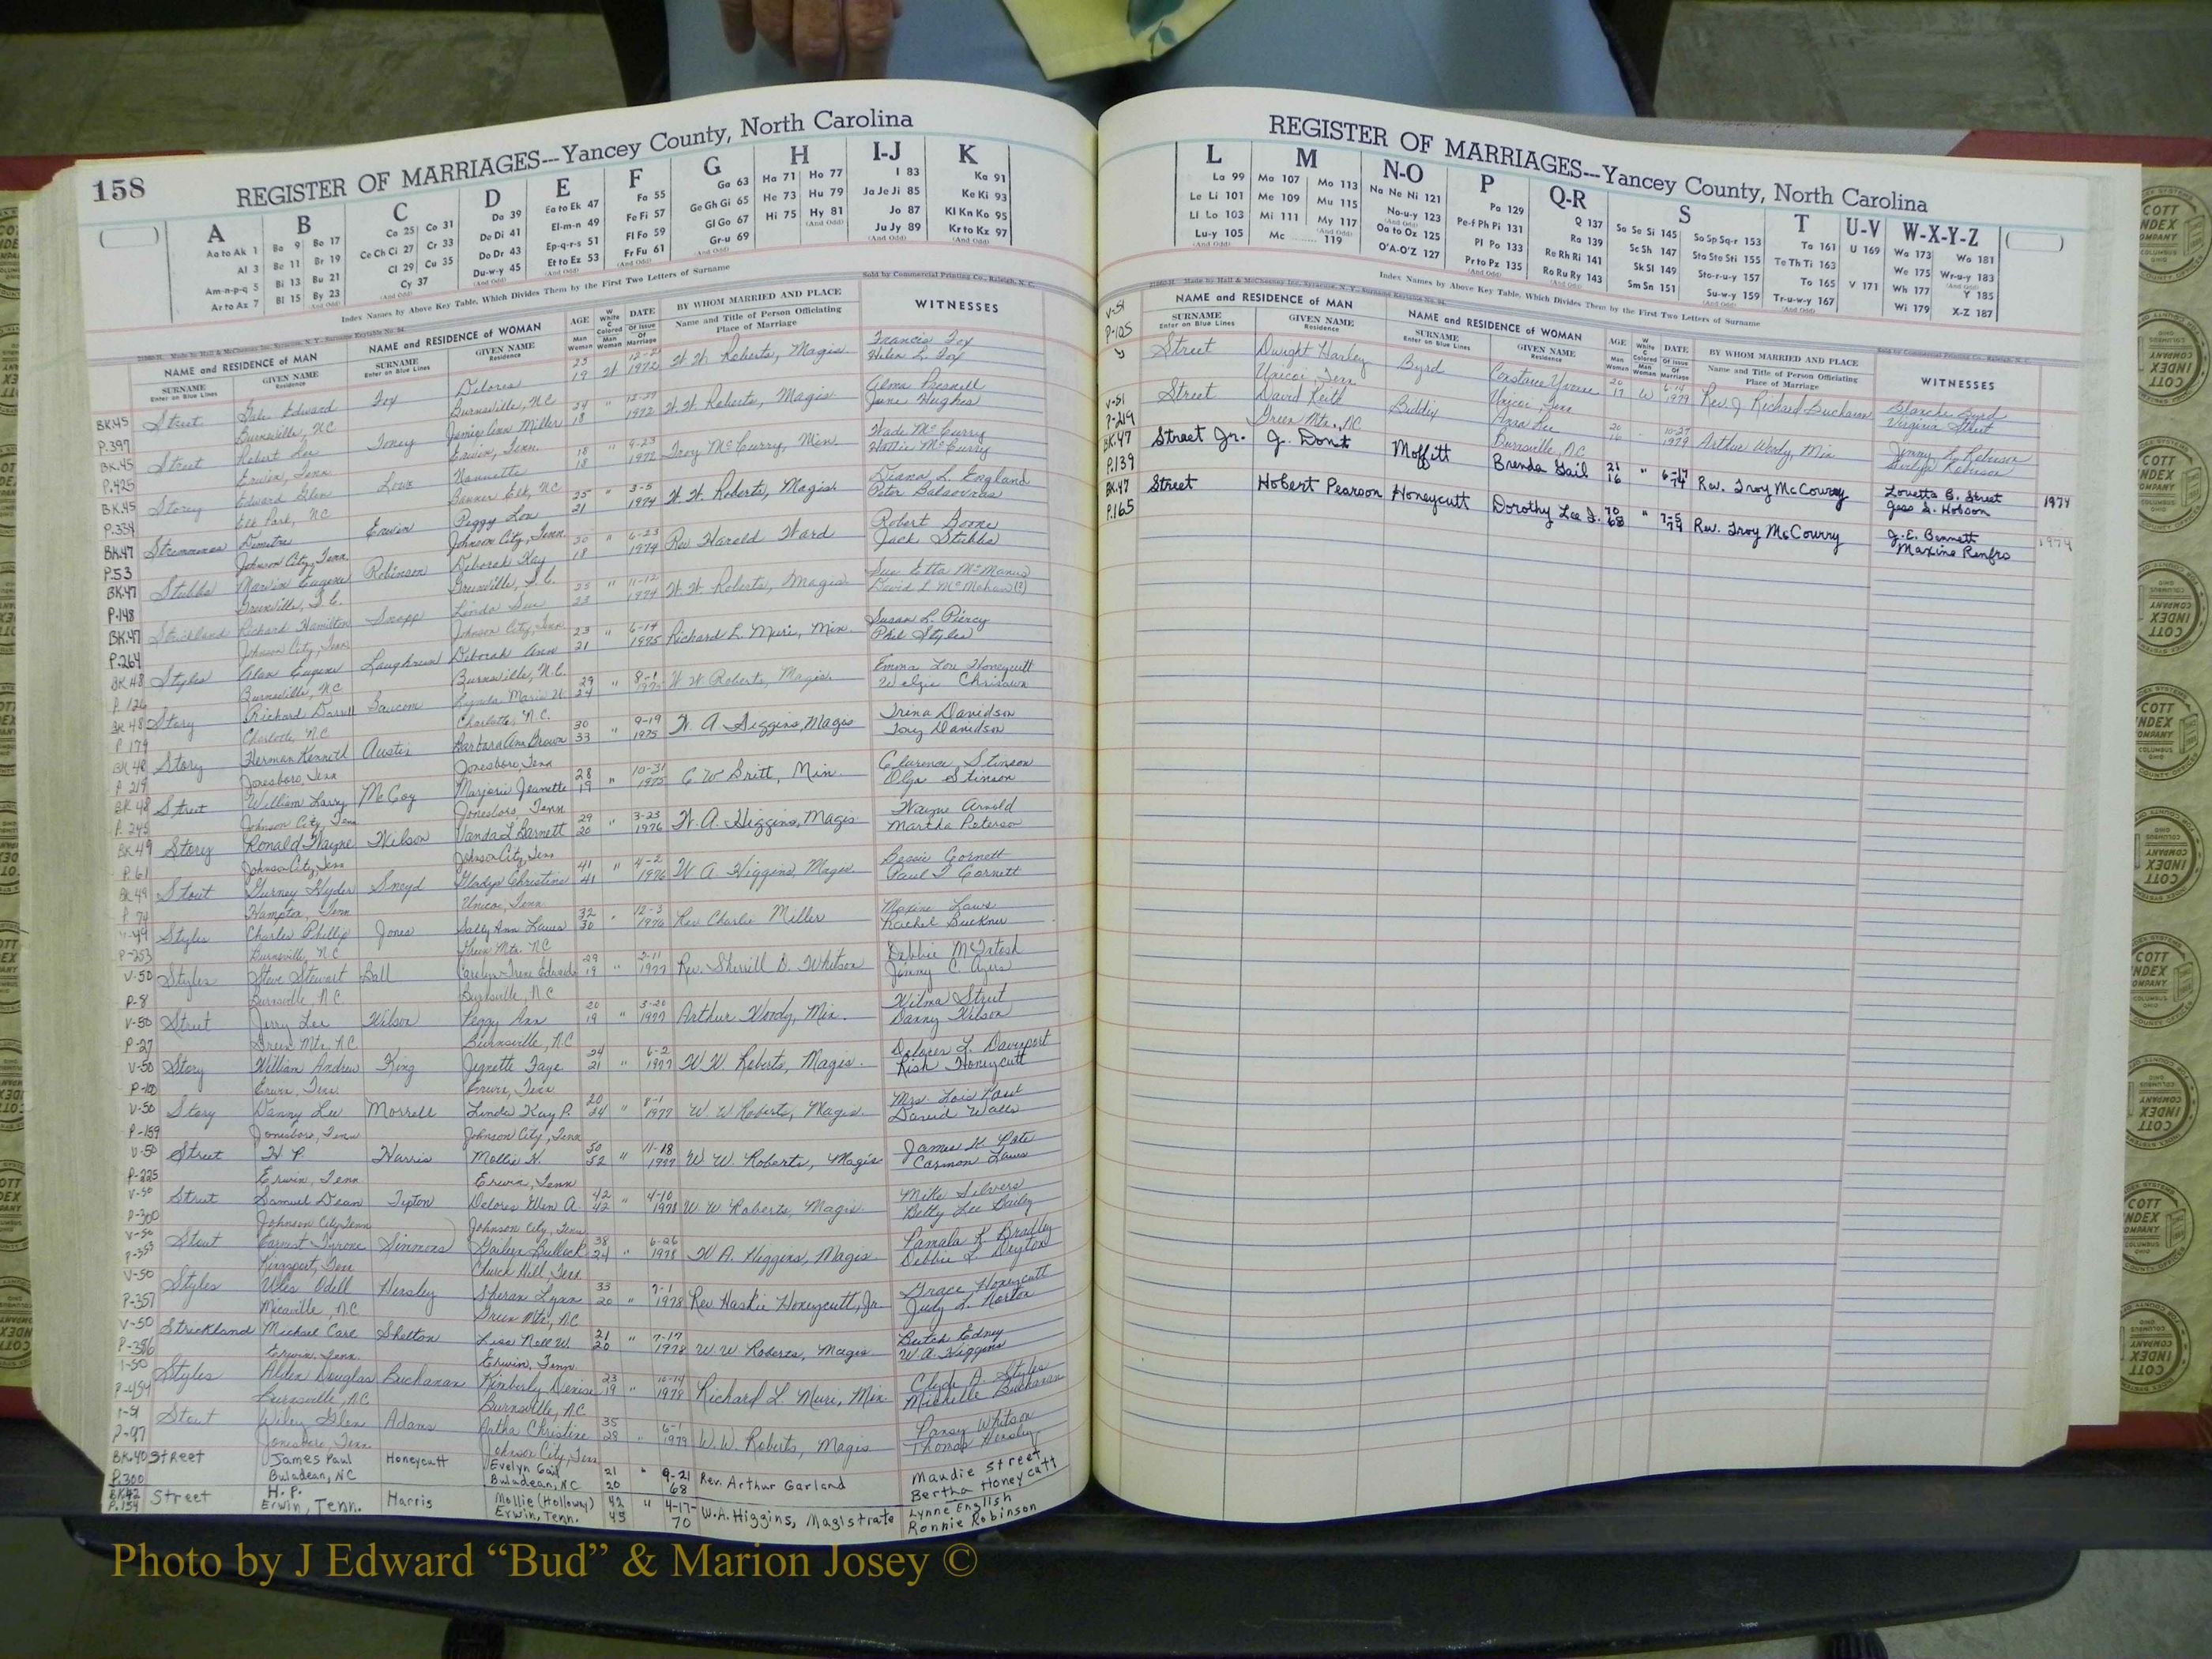 158
REGISTER OF MARRIAGES---Yancey County, North Carolina
A B C D E F G H I-J K
Aa to Ak 1 Ba 9 Bo 17 Ca 25 Co 31 Da 39 Ea to Ek 47 Fa 55 Ga 63 Ha 71 Ho 77 I 83 Ka 91
Al 3 Be 11 Br 19 Ce Ch Ci 27 Cr 33 De Di 41 El-m-n 49 Fe Fi 57 Ge Gh Gi 65 He 73 Hu 79 Ja Je Ji 85 Ke Ki 93
Am-n-p-q 5 Bi 13 Bu 21 Cl 29 Cu 35 Do Dr 43 Ep-q-r-s 51 Fl Fo 59 Gl Go 67 Hi 75 Hy 81 Jo 87 Kl Kn Ko 95
Ar to Az 7 Bl 15 By 23 Cy 37 Du-w-y 45 Et to Ez 53 Fr Fu 61 Gr-u 69 Ju Jy 89 Kr to Kz 97
Index Names by Above Key Table, Which Divides Them by the First Two Letters of Surname
Sold by Commercial Printing Co., Raleigh, N. C.
NAME and RESIDENCE of MAN NAME and RESIDENCE of WOMAN AGE DATE BY WHOM MARRIED AND PLACE WITNESSES
SURNAME Enter on Blue Lines GIVEN NAME Residence SURNAME Enter on Blue Lines GIVEN NAME Residence Man Woman Of Issue Of Marriage Name and Title of Person Officiating Place of Marriage
BK45 Street Gale Edward Fox Delores 19 W 1972 W. W. Roberts, Magis. Francis Fox Helen L. Fox
P.397 Burnsville, NC Burnsville, NC
BK.45 Street Robert Lee Toney Janie Ann Miller 18 " 1972 W. W. Roberts, Magis. June Hughes
P.425 Erwin, Tenn Erwin, Tenn.
BK.45 Storey Edward Glen Nannette 18 18 " 9-23 1972 Troy McCurry, Min Wade McCurry Hattie McCurry
P.334 Elk Park, NC Banner Elk, NC
BK.47 Demitri Erwin Peggy Lou 25 21 " 3-5 1974 W. W. Roberts, Magis. Diana L. England
P.53 Johnson City, Tenn Johnson City, Tenn.
BK.47 Stubbs Marvin Eugene Robinson Deborah Kay 18 " 6-23 1974 Rev Harold Ward Robert Boone Jack Stubbs
P.148 Greenville, S.C. Greenville, S.C.
BK.47 Strickland Richard Hamilton Snapp Linda Sue 23 " 11-12 1974 W. W. Roberts, Magis. Sue Etta McManus David L McMahan(?)
P.264 Johnson City, Tenn Johnson City, Tenn
BK.48 Styles Alan Eugene Laughrun Deborah Ann 23 21 " 6-14 1975 Richard L. Muri, Min. Susan L. Piercy Phil Styles
P.126 Burnsville, NC Burnsville, N.C.
BK 48 Story Richard Darrell Saucom Lynda Marie 29 24 " 8-1 1975 W W Roberts, Magis. Emma Lou Honeycutt Welzie Chrisawn
P 179 Charlotte, N.C. Charlotte, N.C.
BK 48 Story Herman Kenneth Austin Barbara Ann Brown 30 33 " 9-19 1975 W. A. Higgins, Magis Trina Davidson Tony Davidson
P 219 Jonesboro, Tenn Jonesboro, Tenn
BK 48 Street William Larry McCoy Marjorie Jeanette 28 19 " 10-31 1975 C W Britt, Min. Clarence Stinson Olga Stinson
P. 245 Johnson City, Tenn Jonesboro, Tenn
BK 49 Story Ronald Wayne Wilson Vanda L Barnett 29 20 " 3-23 1976 W. A. Higgins, Magis Wayne Arnold Martha Peterson
P. 61 Johnson City, Tenn Johnson City, Tenn
BK 49 Stout Gurney Hyder Sneyd Gladys Christine 41 41 " 4-2 1976 W A Higgins, Magis Bessie Cornett Paul T Cornett
P 74 Hampton, Tenn Unicoi, Tenn
V-49 Styles Charles Phillip Jones Sally Ann Laws 32 30 " 12-3 1976 Rev Charlie Miller Maxine Laws Rachel Buckner
P-253 Burnsville, NC Green Mtn. NC
V-50 Styles Steve Stewart Ball Carolyn Irene Edwards 29 19 " 2-11 1977 Rev. Sherrill B. Whitson Debbie McIntosh Jimmy C. Ayers
P-8 Burnsville, NC Burnsville, NC
V-50 Street Jerry Lee Wilson Peggy Ann 20 19 " 3-20 1977 Arthur Woody, Min. Wilma Street Danny Wilson
P-27 Green Mtn. N.C. Burnsville, N.C
V-50 Story William Andrew King Jeanette Faye 24 21 " 6-2 1977 W. W. Roberts, Magis. Delores L. Davenport Rish Honeycutt
P-100 Erwin, Tenn. Erwin, Tenn
V-50 Story Danny Lee Morrell Linda Kay P. 20 24 " 8-1 1977 W W Roberts, Magis. Mrs. Lois Paul David Walls
P-159 Jonesboro, Tenn Johnson City, Tenn
V-50 Street H P Harris Mollie H. 50 52 " 11-18 1977 W W. Roberts, Magis James H. Pate Carmon Laws
P-225 Erwin, Tenn Erwin, Tenn
V-50 Street Samuel Dean Tipton Delores Glen A. 42 42 " 4-10 1978 W W Roberts, Magis. Mike Silvers Betty Lee Bailey
P-300 Johnson City Tenn Johnson City, Tenn
V-50 Stout Earnest Tyrone Simmons Bullock 38 24 " 6-26 1978 W A. Higgins, Magis Pamala K Bradley Debbie L Deyton
P-353 Kingsport, Tenn Church Hill, Tenn.
V-50 Styles Odell Hensley Sheran Lynn 33 20 " 7-1 1978 Rev Haskie Honeycutt, Jr. Grace Honeycutt Judy L. Norton
P-357 Micaville, N.C Green Mtn, NC
V-50 Strickland Michael Carl Shelton Lisa Nell W. 21 20 " 7-17 1978 W W Roberts, Magis Butch Edney W. A. Higgins
P-376 Erwin, Tenn. Erwin, Tenn.
V-50 Styles Alden Douglas Buchanan Kimberly Denise 23 19 " 10-14 1978 Richard L. Muri, Min. Clyde A. Styles Michelle Buchanan
P-454 Burnsville, NC Burnsville, NC
V-51 Stout Wiley Glen Adams Artha Christine 35 28 " 6-1 1979 W. W. Roberts, Magis Pansy Whitson Thomas Hensley
P-97 Jonesboro, Tenn Johnson City, Tenn
BK.40 Street James Paul Honeycutt Evelyn Gail 21 20 " 9-21 68 Rev. Arthur Garland Maudie Street Bertha Honeycutt
P.300 Buladean, NC Buladean, NC
BK42 Street H. P. Harris Mollie (Holloway) 42 45 " 4-17-70 W.A. Higgins, Magistrate Lynne English Ronnie Robinson
P.154 Erwin, Tenn. Erwin, Tenn.
REGISTER OF MARRIAGES---Yancey County, North Carolina
L M N-O P Q-R S T U-V W-X-Y-Z
La 99 Ma 107 Mo 113 Na Ne Ni 121 Pa 129 Q 137 Sa Se Si 145 So Sp Sq-r 153 Ta 161 U 169 Wa 173 Wo 181
Le Li 101 Me 109 Mu 115 No-u-y 123 Pe-f Ph Pi 131 Ra 139 Sc Sh 147 Sta Ste Sti 155 Te Th Ti 163 We 175 Wr-u-y 183
Ll Lo 103 Mi 111 My 117 Oa to Oz 125 Pl Po 133 Re Rh Ri 141 Sk Sl 149 Sto-r-u-y 157 To 165 V 171 Wh 177 Y 185
Lu-y 105 Mc 119 O'A-O'Z 127 Pr to Pz 135 Ro Ru Ry 143 Sm Sn 151 Su-w-y 159 Tr-u-w-y 167 Wi 179 X-Z 187
Index Names by Above Key Table, Which Divides Them by the First Two Letters of Surname
NAME and RESIDENCE OF MAN NAME and RESIDENCE OF WOMAN AGE DATE BY WHOM MARRIED AND PLACE WITNESSES
SURNAME Enter on Blue Lines GIVEN NAME Residence SURNAME Enter on Blue Lines GIVEN NAME Residence Man Woman Of Issue Of Marriage Name and Title of Person Officiating Place of Marriage
V-51 P-105 Street Dwight Harley Byrd Constance Yvonne 20 17 W 6-14 1979 Rev. J Richard Buchanan Blanche Byrd Virginia Street
Unicoi, Tenn Unicoi, Tenn
V-51 P-219 Street David Keith Biddix 20 16 " 10-27 1979 Arthur Woody, Min
Green Mtn., NC Burnsville, N.C.
BK.47 P.139 Street Jr. G. Dont Moffitt Brenda Gail 21 16 " 6-14 74 Rev. Troy McCourry Louetta B. Street Jess D. Hobson 1974
BK.47 P.165 Street Hobert Pearson Honeycutt Dorothy Lee 70 68 " 7-5 74 Rev. Troy McCourry J. E. Bennett Maxine Renfro 1974
Photo by J Edward “Bud” & Marion Josey ©